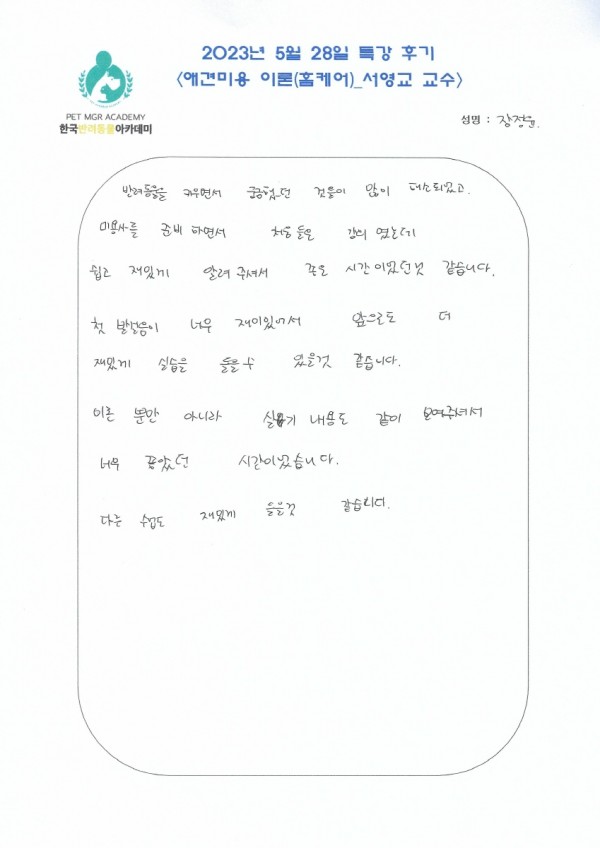 2023년 5월 28일 특강 후기
<애견미용 이론(홈케어)_서영교 교수>
PET MGR ACADEMY
한국반려동물아카데미
성명 : 장정윤.
반려동물을 키우면서 궁금했던 것들이 많이 해소되었고.
미용사를 준비 하면서 처음 들은 강의 였는데
쉽고 재밌게 알려 주셔서 좋은 시간이었던것 같습니다.
첫 발걸음이 너무 재미있어서 앞으로도 더
재밌게 실습을 들을 수 있을것 같습니다.
이론 뿐만 아니라 실기 내용도 같이 보여주셔서
너무 좋았던 시간이었습니다.
다른 수업도 재밌게 들을것 같습니다.